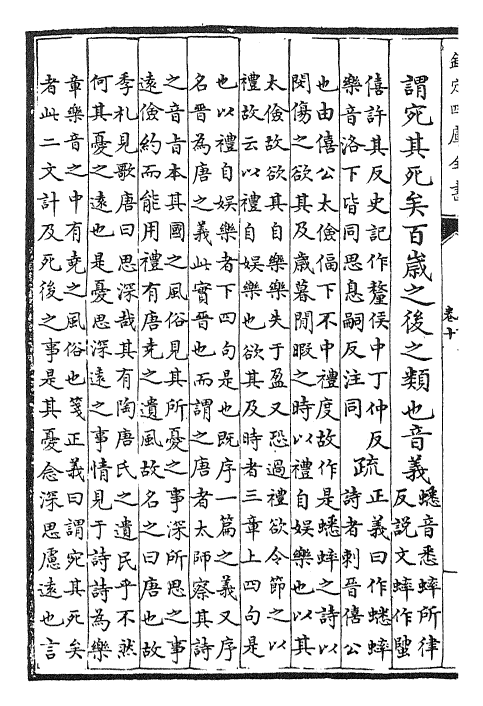 欽定四庫全書
卷十
謂宛其死矣百歲之後之類也音義
蟋音悉蟀所律
反説文蟀作
僖許其反史記作釐侯中丁仲反
樂音洛下皆同思息嗣反注同
疏
正義曰作蟋蟀
詩者刺晉僖公
也由僖公太儉偪下不中禮度故作是蟋蟀之詩以
閔傷之欲其及歲暮閒暇之時以禮自娯樂也以其
太儉故欲其自樂樂失于盈又恐過禮欲令節之以
禮故云以禮自娯樂也欲其及時者三章上四句是
也以禮自娯樂者下四句是也既序一篇之義又序
名晉為唐之義此實晉也而謂之唐者太師察其詩
之音旨本其國之風俗見其所憂之事深所思之事
逺儉約而能用禮有唐堯之遺風故名之曰唐也故
季札見歌唐曰思深哉其有陶唐氏之遺民乎不然
何其憂之逺也是憂思深逺之事情見于詩詩為樂
章樂音之中有堯之風俗也箋正義曰謂宛其死矣
者此二文計及死後之事是其憂念深思慮逺也言